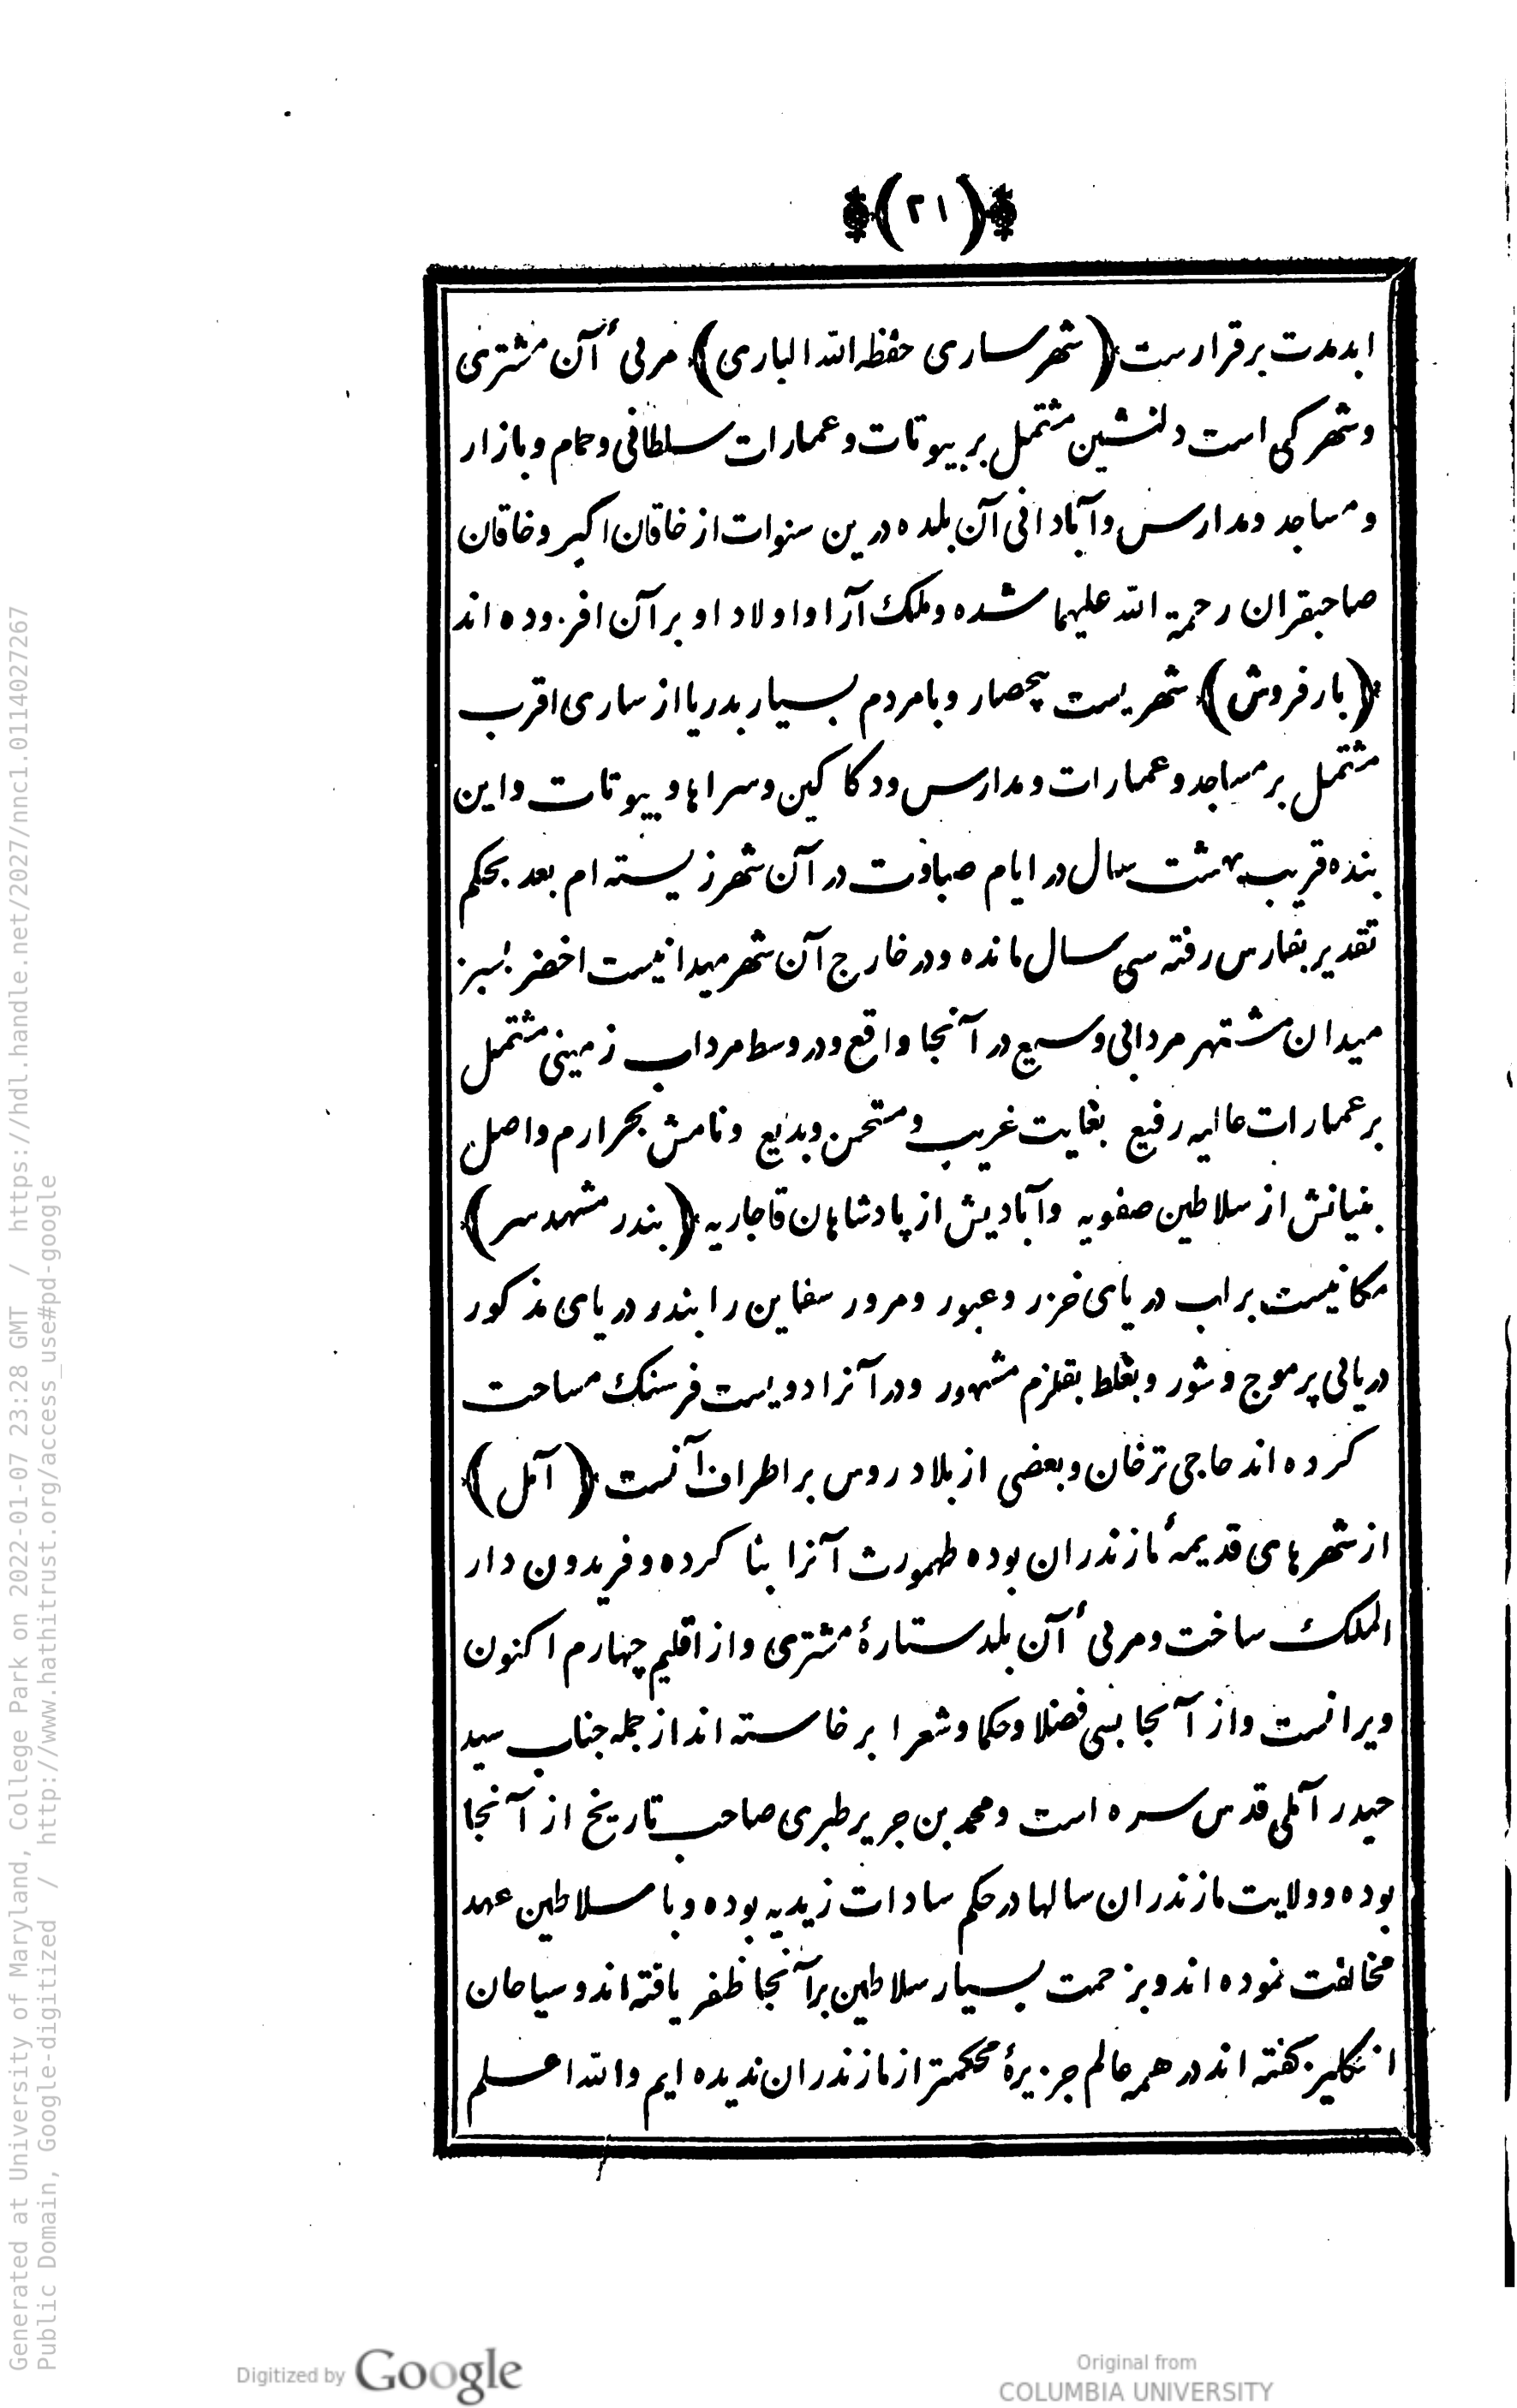 (۲۱)
ابدمدت برقرارست (شهر ساری حفظه الله الباری) مربی ٔ آن مشتری
وشهرکی است دلنشین مشتمل بر بیوتات وعمارات سلطانی وحمام وبازار
ومساجد ومدارس وآبادانی آن بلده درین سنوات از خاقان اکبر وخاقان
صاحبقران رحمة الله علیهما شده وملک آرا واولاد او بر آن افزوده اند
(بارفروش) شهریست بیحصار وبامردم بسیار بدریا از ساری اقرب
مشتمل بر مساجد وعمارات ومدارس ودکاکین وسراها وبیوتات واین
بنده قریب بهشت سال در ایام صباوت در آن شهر زیسته ام بعد بحکم
تقدیر بفارس رفته سی سال مانده ودر خارج آن شهر میدانیست اخضر بسبز
میدان مشتهر مردابی وسیع در آنجا واقع ودر وسط مرداب زمینی مشتمل
بر عمارات عالیه رفیع بغایت غریب ومستحسن وبدیع ونامش بحر ارم واصل
بنیانش از سلاطین صفویه وآبادیش از پادشاهان قاجاریه (بندر مشهدسر)
مکانیست بر لب دریای خزر وعبور ومرور سفاین را بندر دریای مذکور
دریائی پر موج وشور وبغلط بقلزم مشهور ودر آنرا دویست فرسنک مساحت
کرده اند حاجی ترخان وبعضی از بلاد روس بر اطراف آنست (آمل)
از شهرهای قدیمهٔ مازندران بوده طهمورث آنرا بنا کرده وفریدون دار
الملک ساخت ومربی ٔ آن بلد ستارهٔ مشتری واز اقلیم چهارم اکنون
ویرانست واز آنجا بسی فضلا وحکما وشعرا برخاسته اند از جمله جناب سید
حیدر آملی قدس سره است ومحمد بن جریر طبری صاحب تاریخ از آنجا
بوده وولایت مازندران سالها در حکم سادات زیدیه بوده وبا سلاطین عهد
مخالفت نموده اند وبزحمت بسیار سلاطین بر آنجا ظفر یافته اند وسیاحان
انگلیز گفته اند در همه عالم جزیرهٔ محکمتر از مازندران ندیده ایم والله اعلم
Generated at University of Maryland, College Park on 2022-01-07 23:28 GMT / https://hdl.handle.net/2027/nnc1.0114027267
Public Domain, Google-digitized / http://www.hathitrust.org/access_use#pd-google
Digitized by Google
Original from
COLUMBIA UNIVERSITY